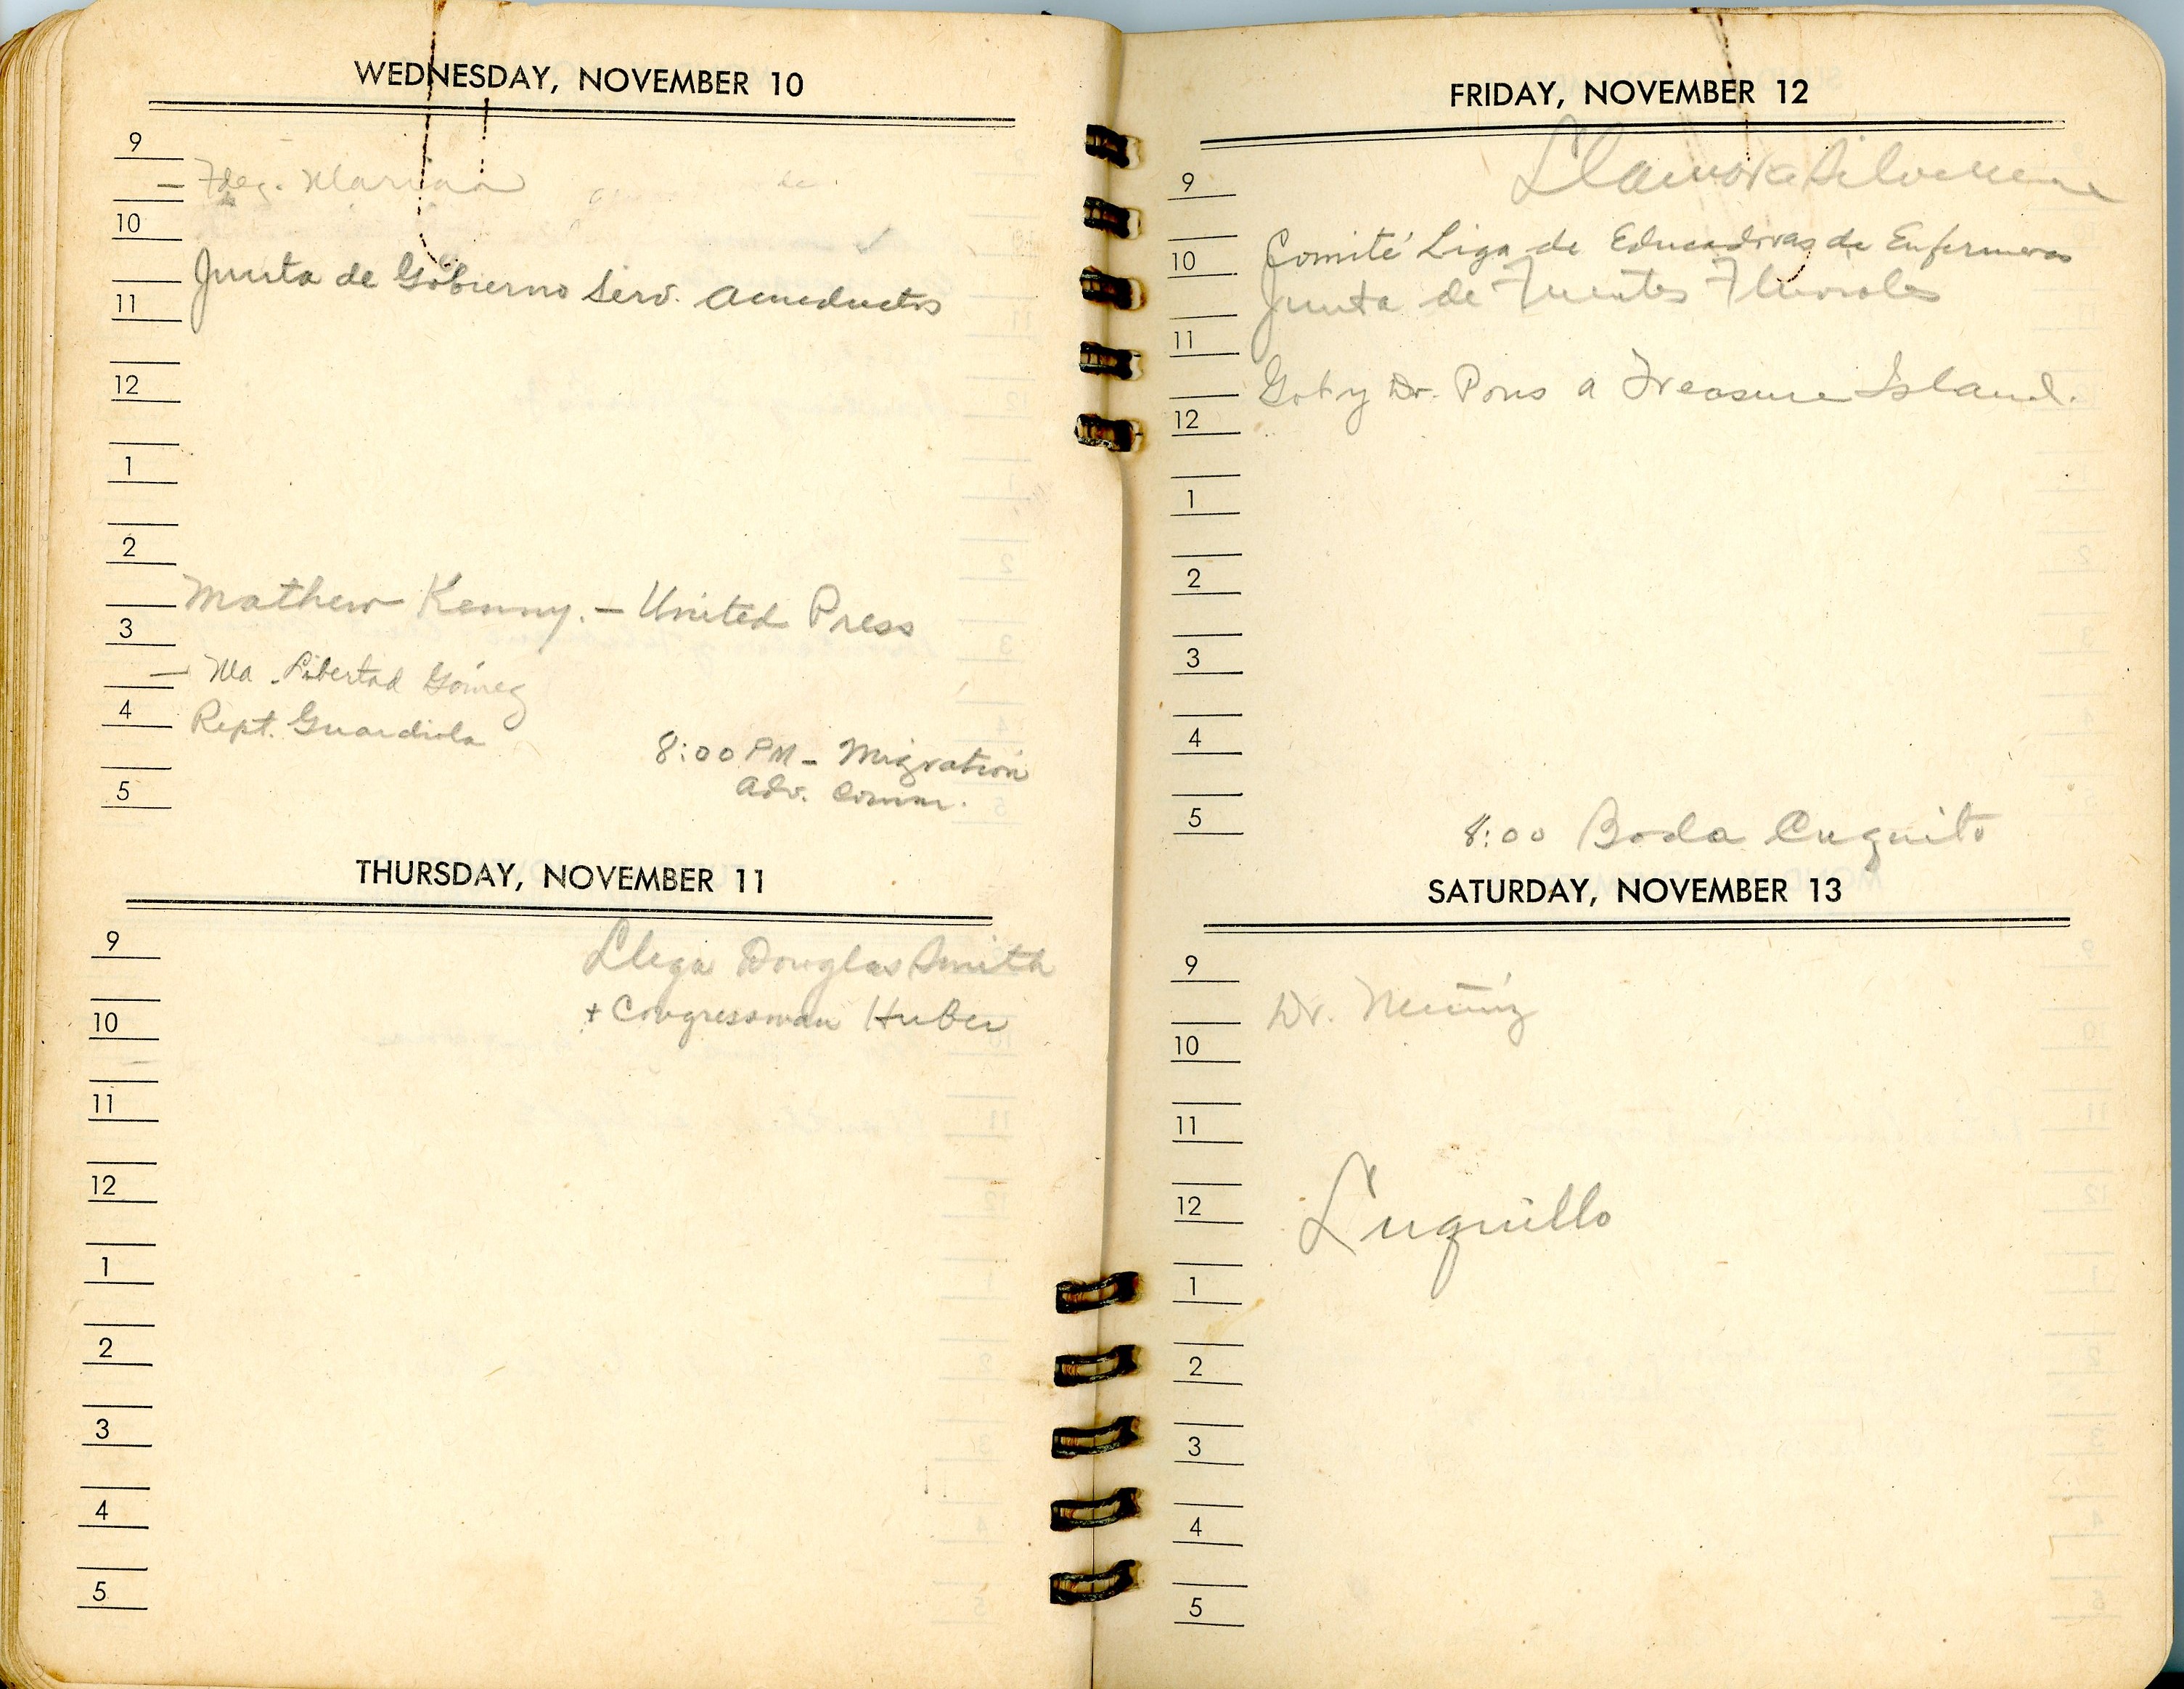 WEDNESDAY, NOVEMBER 10
9
Fdez. Marina
10
Junta de Gobierno Serv. Acueductos
11
12
1
2
Mathew Kenny. — United Press
3
— Ma. Libertad Gómez
4
Rept. Guardiola
8:00 PM — Migration
Adv. Comm.
5
THURSDAY, NOVEMBER 11
9
Llega Douglas Smith
+ Congressman Huber
10
11
12
1
2
3
4
5
FRIDAY, NOVEMBER 12
9
Comité Liga de Educadoras de Enfermeras
10
Junta de Fuentes Fluviales
11
Gob y Dr. Pons a Treasure Island.
12
1
2
3
4
5
8:00 Boda Cuquito
SATURDAY, NOVEMBER 13
9
Dr. Muñiz
10
11
12
Luquillo
1
2
3
4
5